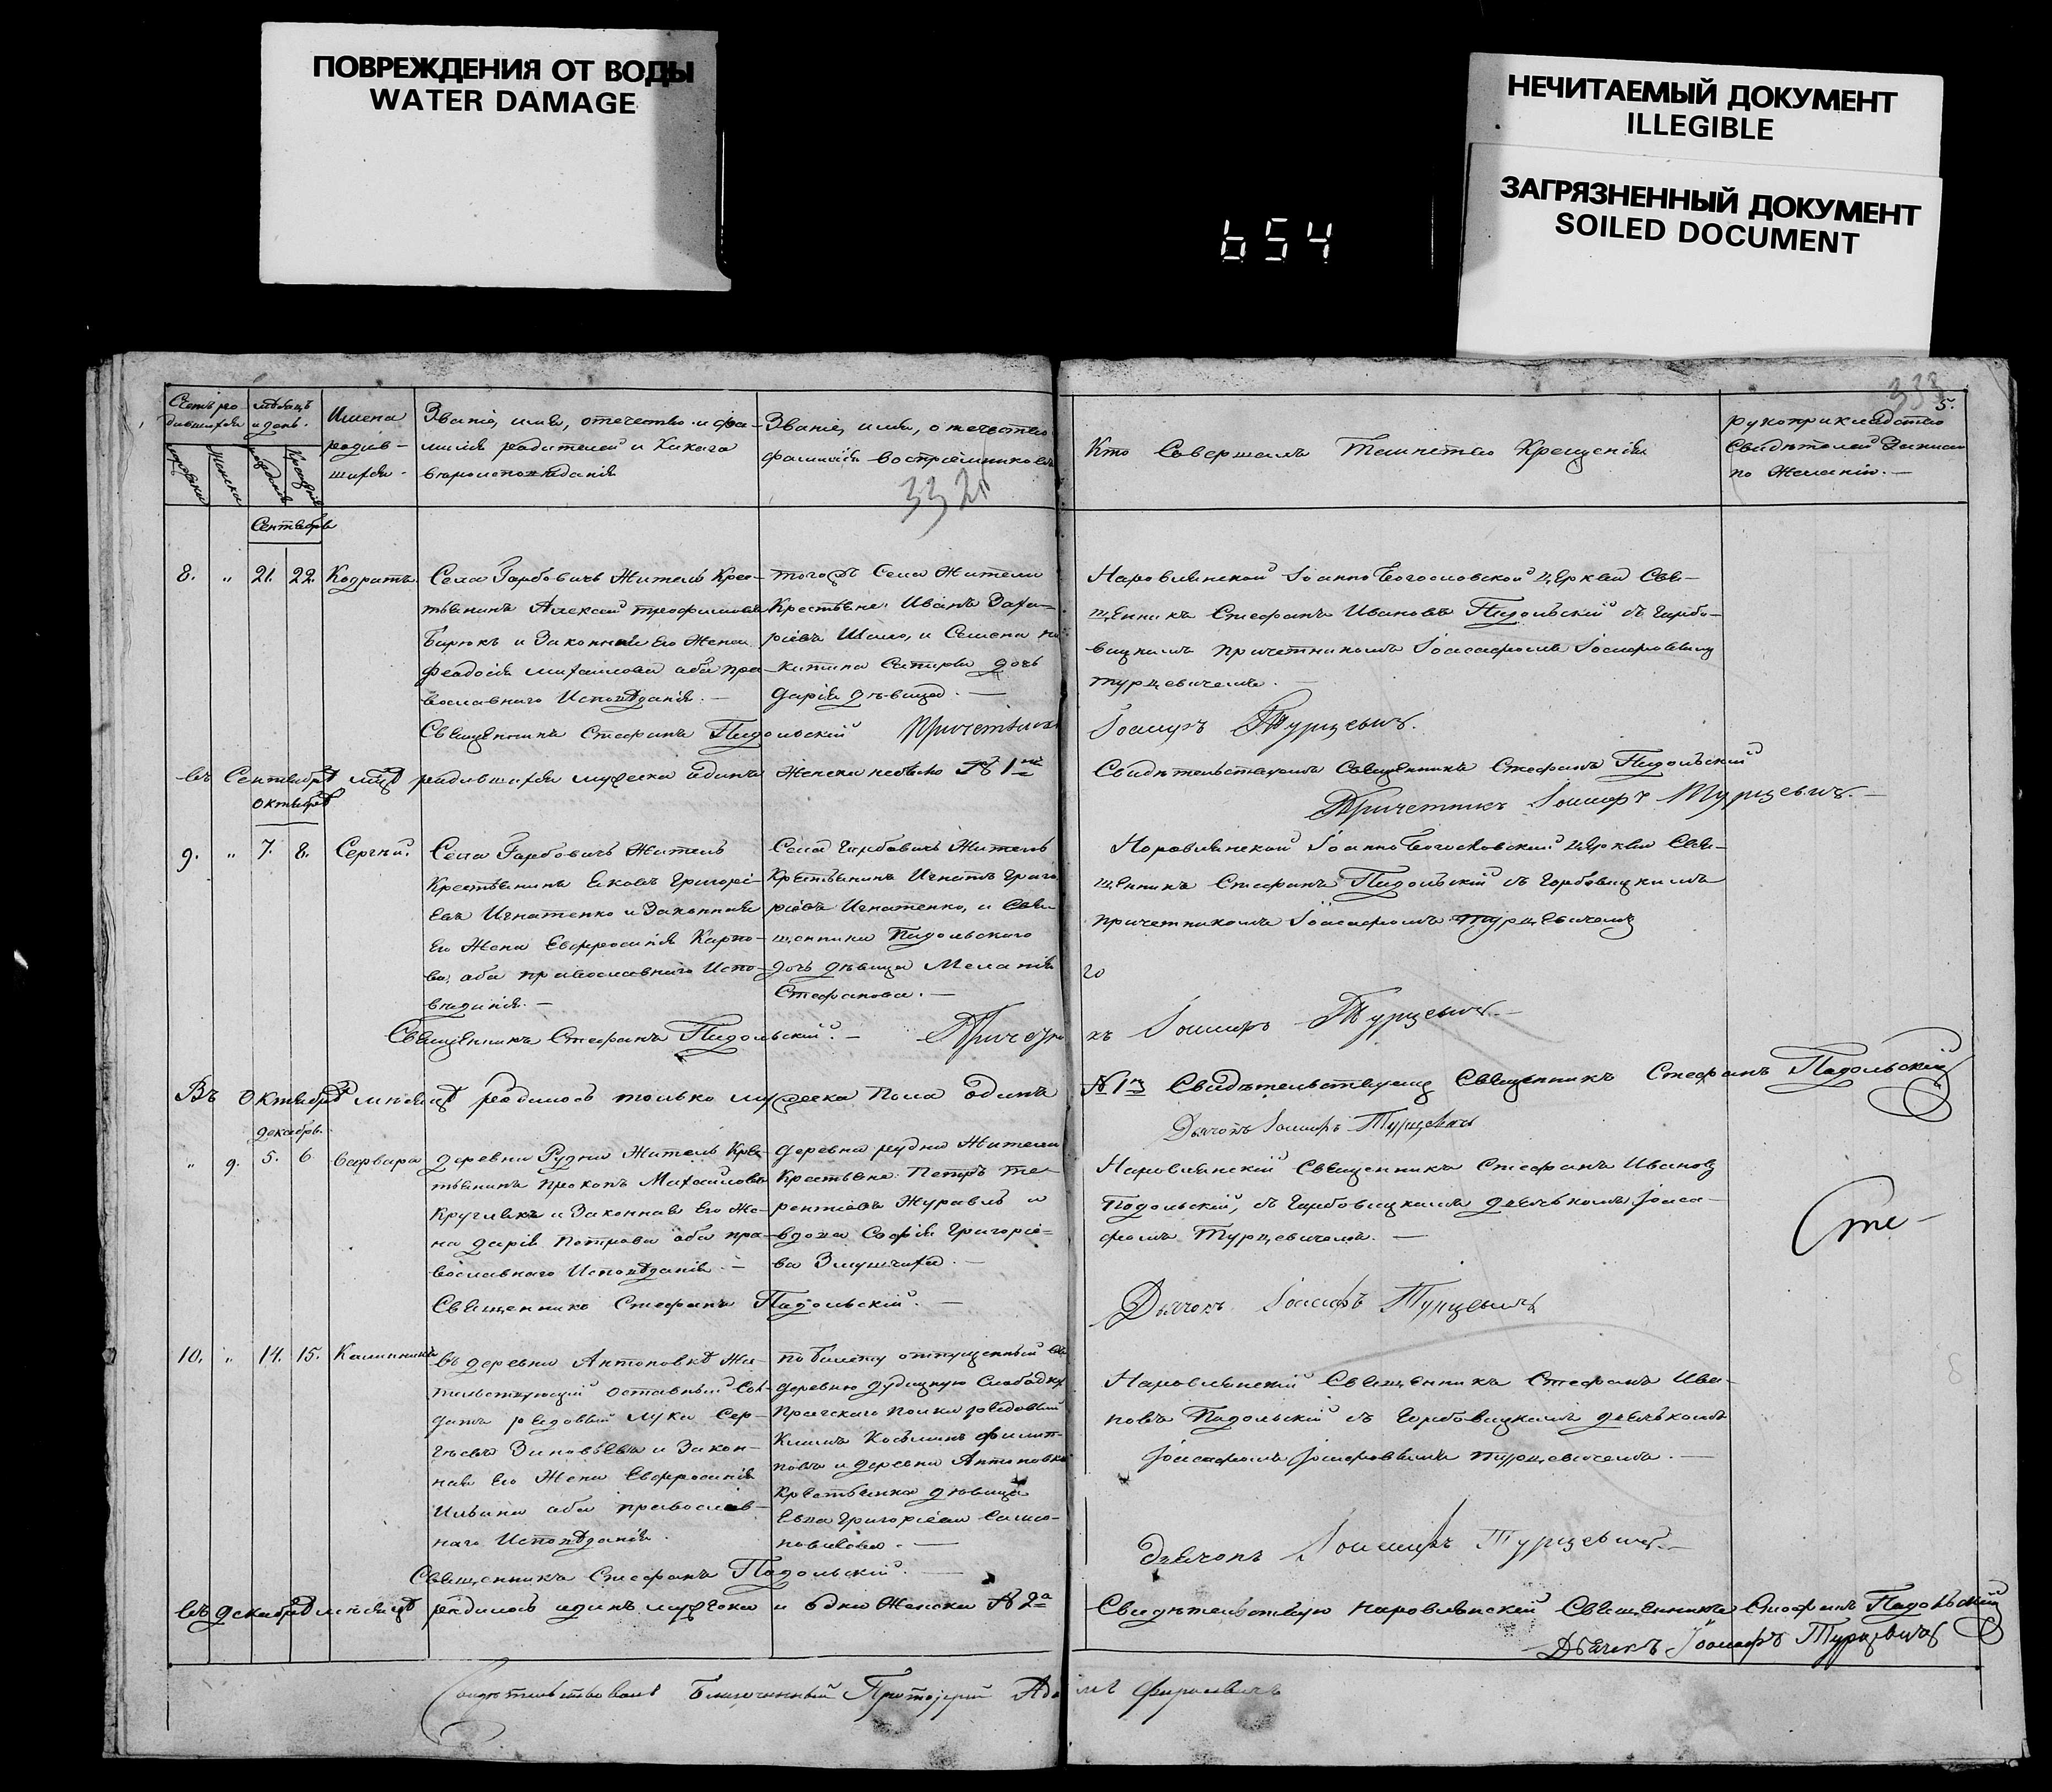 ПОВРЕЖДЕНИЯ ОТ ВОДЫ
WATER DAMAGE
НЕЧИТАЕМЫЙ ДОКУМЕНТ
ILLEGIBLE
ЗАГРЯЗНЕННЫЙ ДОКУМЕНТ
SOILED DOCUMENT
654
333
5.
Имена
родив-
шихся
Званіе, имя, отечество и фа-
милія родителей и какого
вѣроисповѣданія
Званіе, имя, отечество
фамилія воспріемниковъ
332
Кто Совершалъ Таинство Крещенія
рукоприкладство
Свидѣтелей Записи
по Желанію. —
Сентябрь
8. „ 21. 22. Кодратъ
Села Гарбовичъ Житель Крес-
тьянинъ Алексей Трофимовъ
Бирюкъ и Законная Его Жена
Феодосія Михайлова оба пра-
вославнаго Исповѣданія. —
тогожъ Села Жители
Крестьяне Иванъ Заха-
ріевъ Шило, и Семена Ни-
китина дочь
Дарія дѣвица. —
Наровлянской Іоанно Богословской церкви Свя-
щенникъ Стефанъ Ивановъ Подольскій съ Гарбо-
вицкимъ причетникомъ Іоасафомъ Іосифовымъ
Турцевичемъ.
Священникъ Стефанъ Подольскій Причетникъ
Іоасафъ Турцевичъ.
въ Сентябрѣ м͠цѣ родившихся мужеска одинъ Женска небыло № 1й
Свидѣтельствуемъ Священникъ Стефанъ Подольскій
Причетникъ Іоасафъ Турцевичъ. —
Октябрѣ
9. „ 7. 8. Сергѣй.
Села Гарбовичъ Житель
Крестьянинъ Яковъ Григорі-
евъ Игнатенко и Законная
Его Жена Евфросинія Карпо-
ва, оба православнаго Испо-
вѣданія. —
Села Гарбовичъ Житель
Крестьянинъ Игнатъ Григо
ріевъ Игнатенко, и Свя-
щенника Подольского
дочь дѣвица Меланія
Стефанова. —
Наровлянской Іоанно Богословской церкви Свя-
щенникъ Стефанъ Подольскій съ Гарбовицкимъ
причетникомъ Іоасафомъ Турцевичемъ
Священникъ Стефанъ Подольскій. — Причетни
къ Іоасафъ Турцевичъ. —
Въ Октябрѣ мѣсяцѣ родилось только мужеска пола одинъ
№ 1й Свидѣтельствуемъ Священникъ Стефанъ Подольскій
Дьячокъ Іоасафъ Турцевичъ
Декабрь.
„ 9. 5. 6 Варвара
деревни Рудни Житель Кре-
стьянинъ Прокопъ Михайловъ
Кругликъ и Законная Его Же-
на Дарія Петрова оба пра-
вославнаго Исповѣданія. —
деревни рудни Жители
Крестьяне Петръ Те-
рентіевъ Журавль и
вдова Софія Григоріе-
ва
Наровлянскій Священникъ Стефанъ Ивановъ
Подольскій, съ Гарбовицкимъ дьячкомъ Іоаса-
фомъ Турцевичемъ. —
Священникъ Стефанъ Подольскій. —
Дьячокъ Іоасафъ Турцевичъ
10. „ 14. 15. Калинникъ
въ деревни Антоновкѣ Жи-
тельствующій отставный Сол-
датъ рядовый Лука Сер-
гѣевъ Зиновьевъ и Закон-
ная Его Жена Евфросинія
Ильина оба православ-
наго Исповѣданія.
по билету отпущенный въ
деревню Дудицкую Слободку
полка рядовый
Климъ Косьминъ Филип-
повъ и деревни Антоновки
Крестьянка дѣвица
Ева Григоріева
Наровлянскій Священникъ Стефанъ Ива-
новъ Подольскій съ Гарбовицкимъ дьячкомъ
Іоасафомъ Іосифовымъ Турцевичемъ. —
Священникъ Стефанъ Подольскій. —
Дьячокъ Іоасафъ Турцевичъ. —
въ декабрѣ мѣсяцѣ родилось одинъ мужеска и одна Женска № 2а
Свидѣтельствую Наровлянскій Священникъ Стефанъ Подольскій
Дьячекъ Іоасафъ Турцевичъ
Свидѣтельствовалъ Благочинный Протоіерей